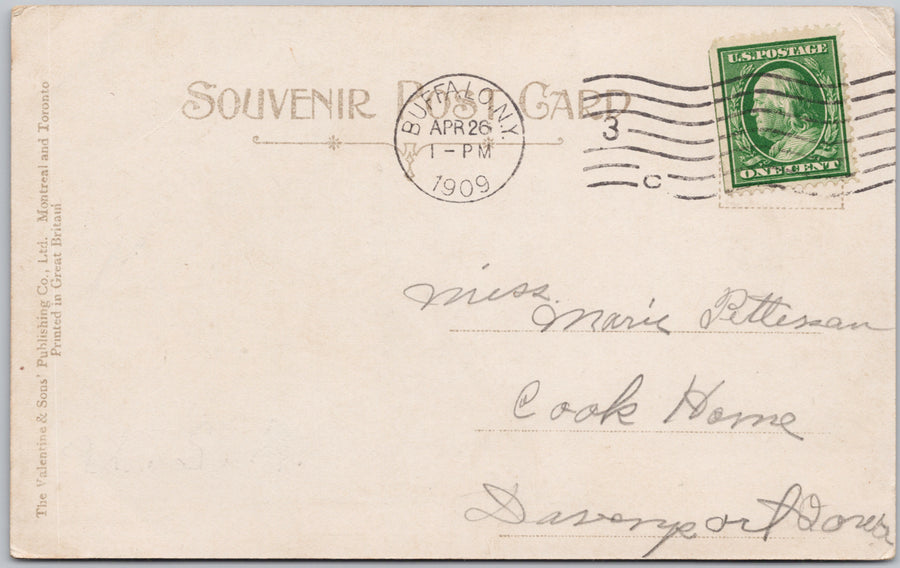 SOUVENIR POST CARD
BUFFALO, N.Y.
APR 26
1 - PM
1909
3
C
U.S. POSTAGE
ONE CENT
Miss.
Marie Pettersan
Cook Home
Davenport Iowa
The Valentine & Sons' Publishing Co., Ltd. Montreal and Toronto
Printed in Great Britain